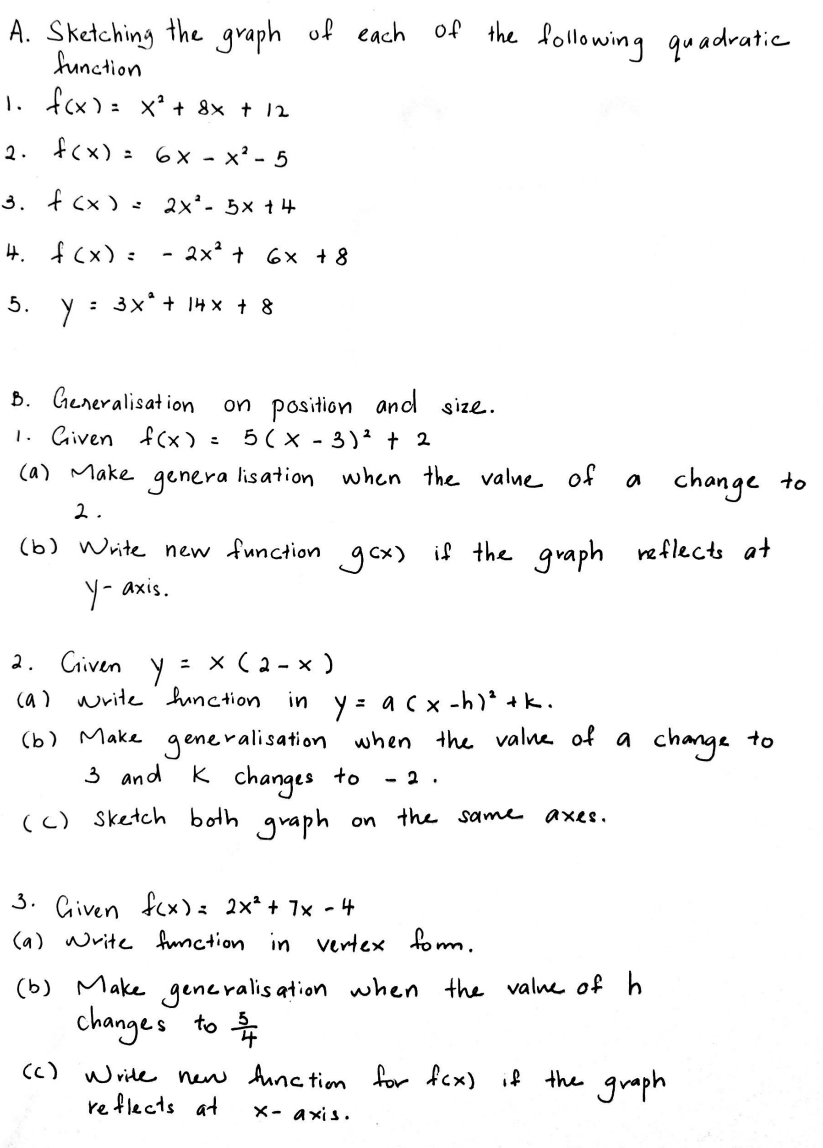 A. Sketching the graph of each of the following quadratic
function
1. f(x) = x² + 8x + 12
2. f(x) = 6x - x² - 5
3. f(x) = 2x² - 5x + 4
4. f(x) = - 2x² + 6x + 8
5. y = 3x² + 14x + 8
B. Generalisation on position and size.
1. Given f(x) = 5(x - 3)² + 2
(a) Make generalisation when the value of a change to
2.
(b) Write new function g(x) if the graph reflects at
y-axis.
2. Given y = x(2-x)
(a) Write function in y = a(x-h)² + k.
(b) Make generalisation when the value of a change to
3 and k changes to -2.
(c) Sketch both graph on the same axes.
3. Given f(x) = 2x² + 7x - 4
(a) Write function in vertex form.
(b) Make generalisation when the value of h
changes to 5/4
(c) Write new function for f(x) if the graph
reflects at x-axis.